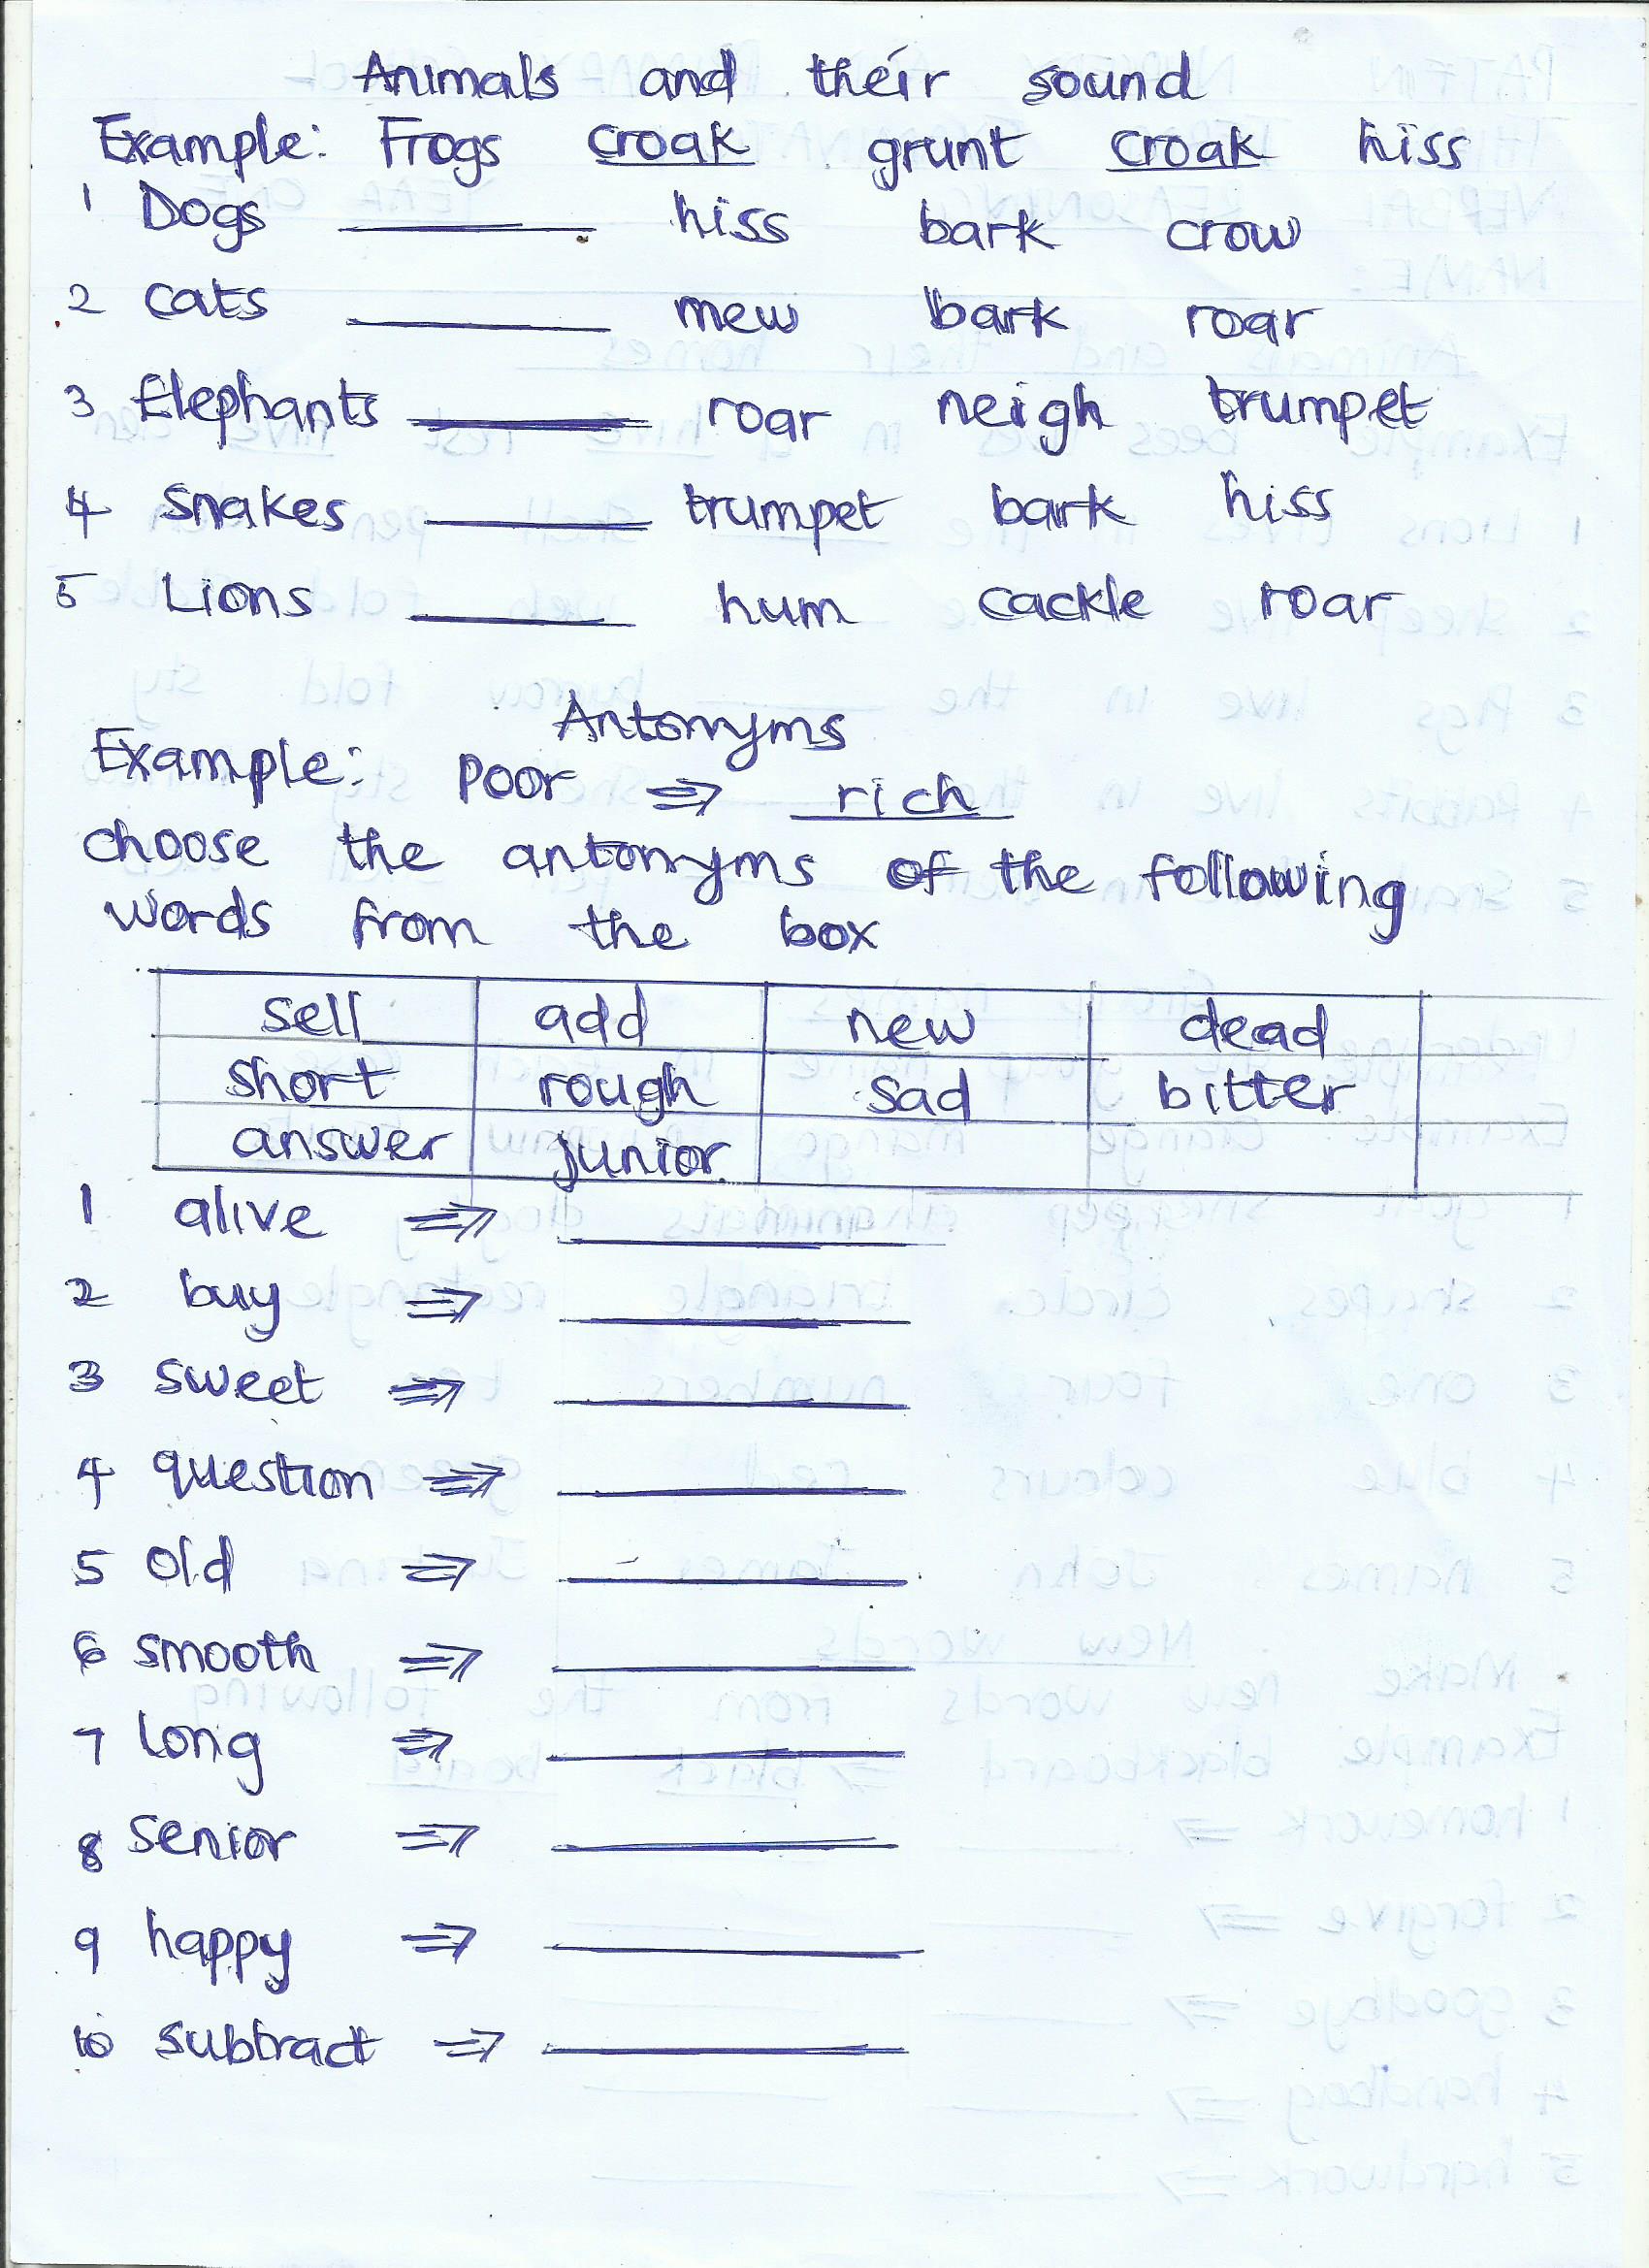 Animals and their sound
Example: Frogs croak grunt croak hiss
1 Dogs ________ hiss bark crow
2 cats ________ mew bark roar
3 Elephants ________ roar neigh trumpet
4 snakes ________ trumpet bark hiss
5 Lions ________ hum cackle roar
Antonyms
Example: Poor ⇒ rich
choose the antonyms of the following
words from the box
sell add new dead
short rough sad bitter
answer junior.
1 alive ⇒ ________
2 buy ⇒ ________
3 sweet ⇒ ________
4 question ⇒ ________
5 old ⇒ ________
6 smooth ⇒ ________
7 long ⇒ ________
8 senior ⇒ ________
9 happy ⇒ ________
10 subtract ⇒ ________